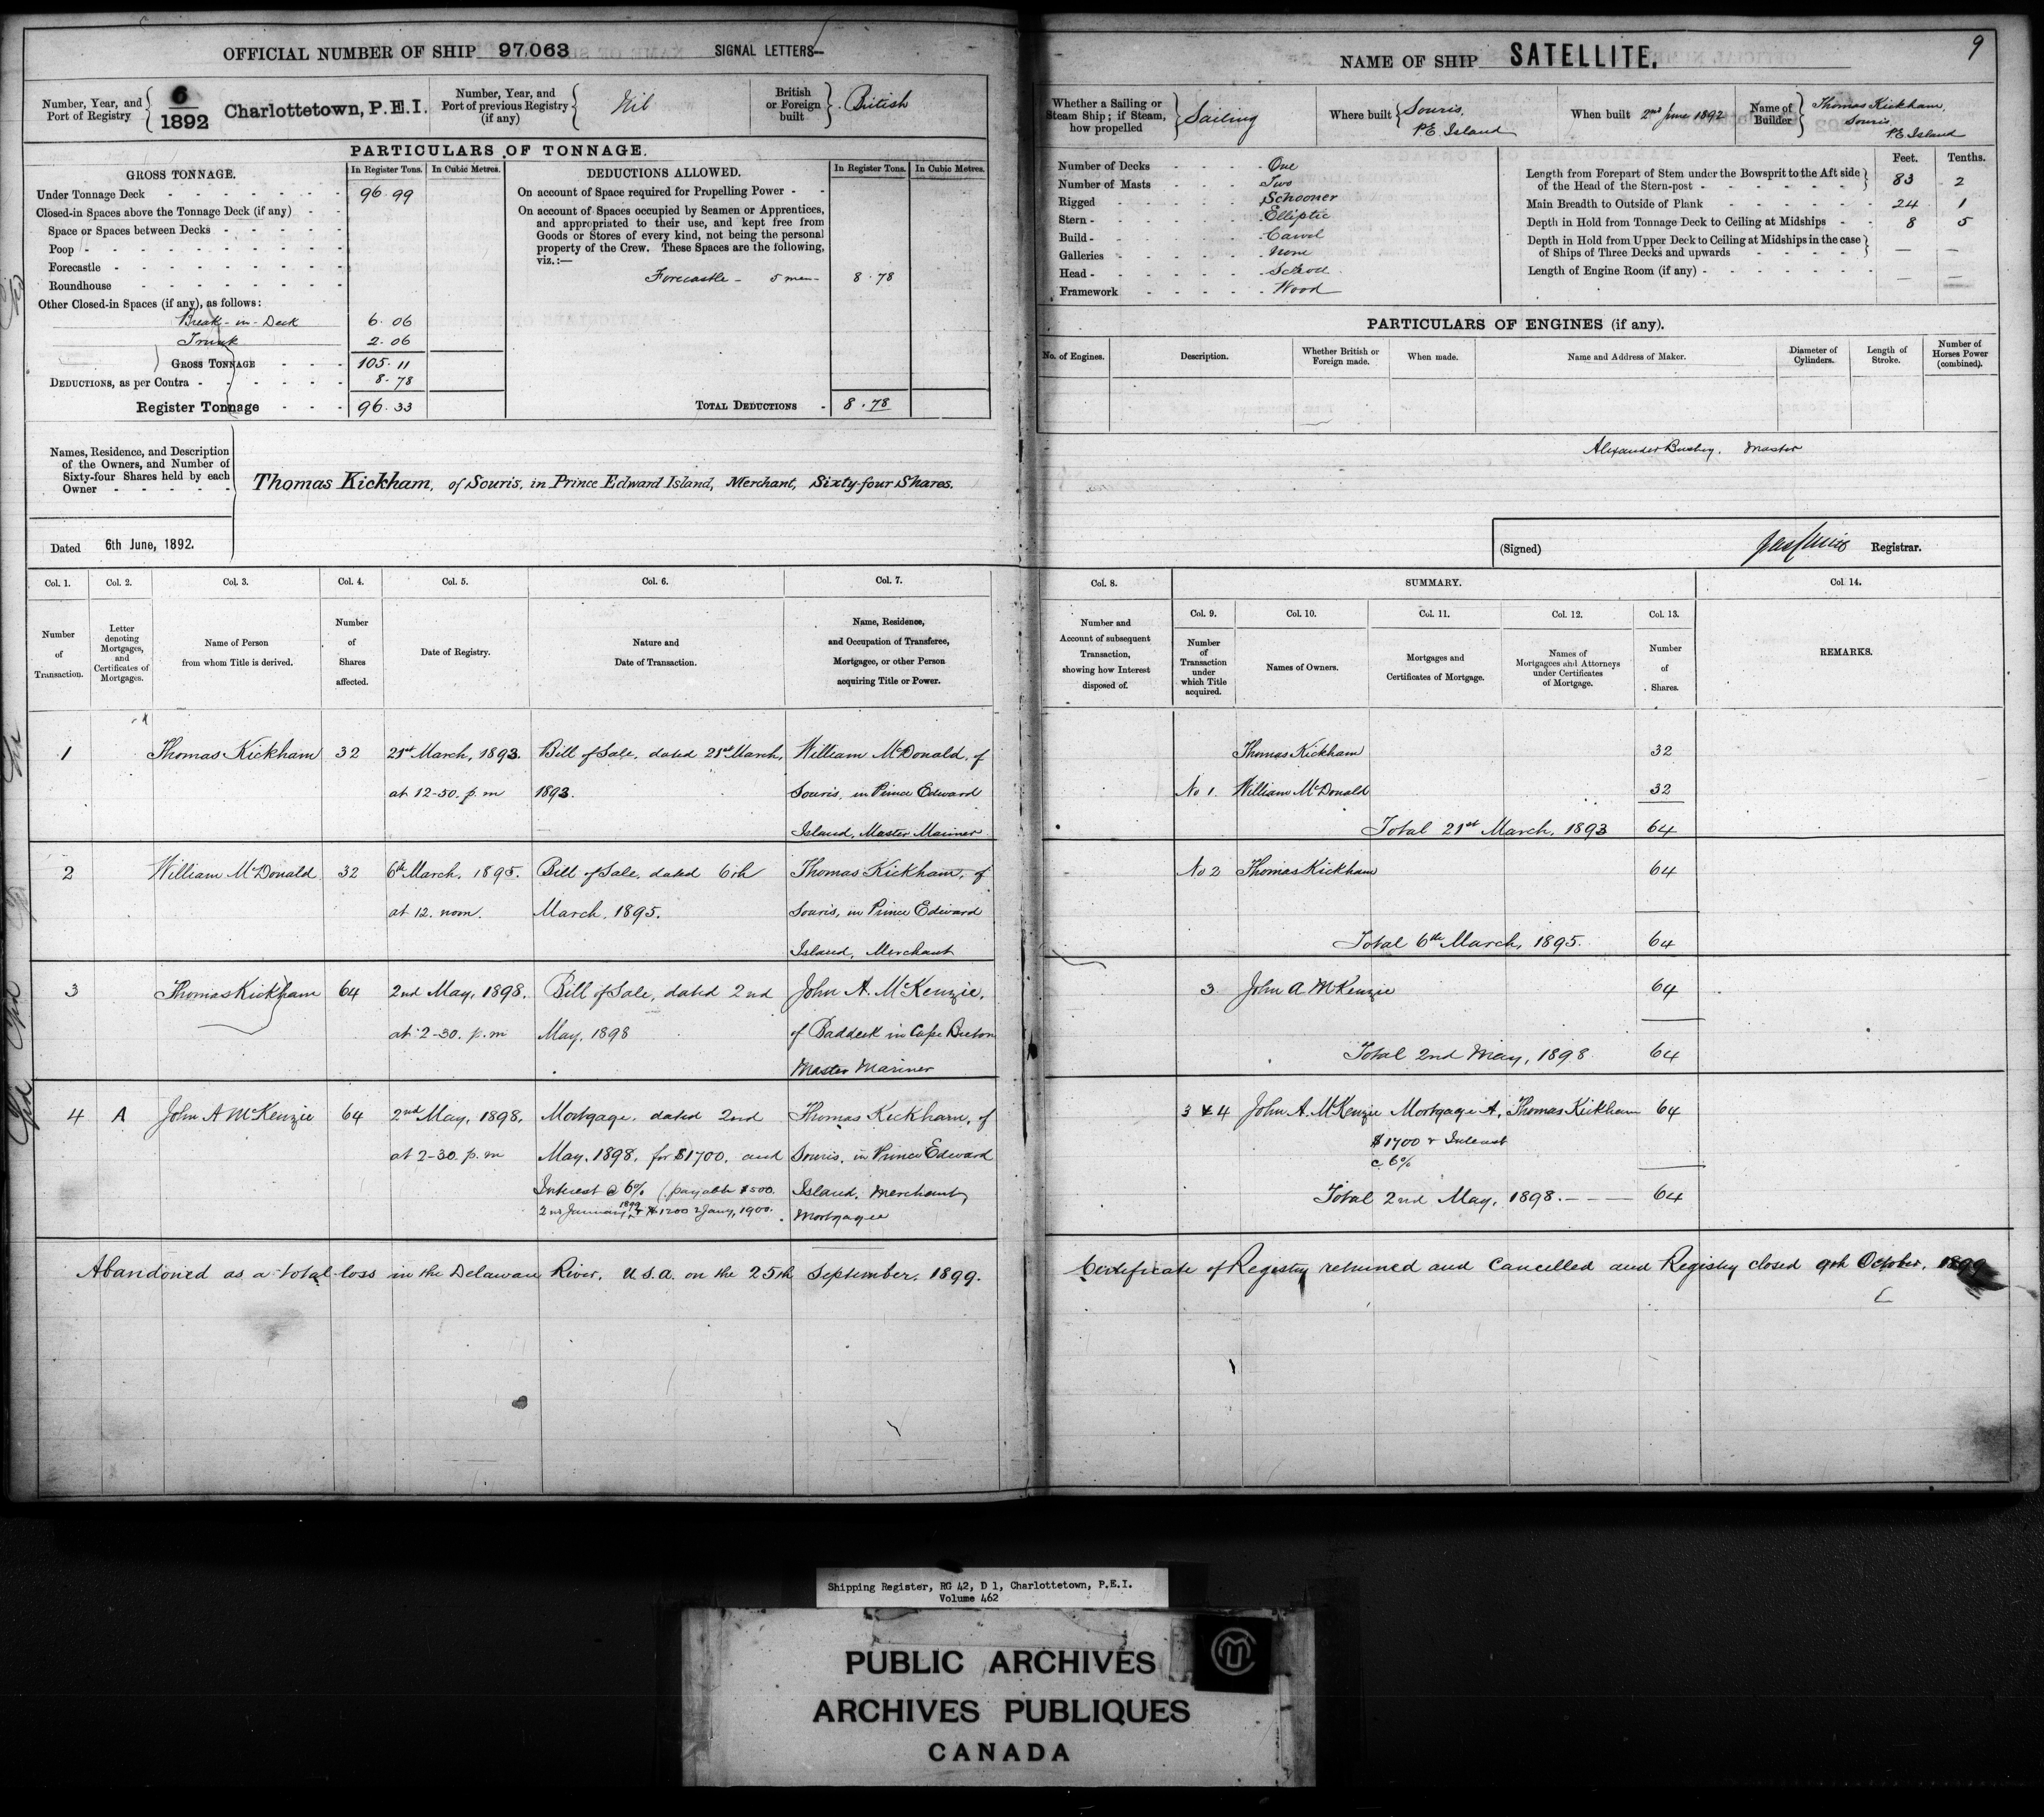 OFFICIAL NUMBER OF SHIP 97.063 SIGNAL LETTERS—
Number, Year, and Port of Registry 6/1892 Charlottetown, P.E.I.
Number, Year, and Port of previous Registry (if any) Nil
British or Foreign built British
PARTICULARS OF TONNAGE.
GROSS TONNAGE. In Register Tons. In Cubic Metres.
Under Tonnage Deck 96.99
Closed-in Spaces above the Tonnage Deck (if any)
Space or Spaces between Decks
Poop
Forecastle
Roundhouse
Other Closed-in Spaces (if any), as follows:
Break-in-Deck 6.06
Trunk 2.06
GROSS TONNAGE 105.11
DEDUCTIONS, as per Contra 8.78
Register Tonnage 96.33
DEDUCTIONS ALLOWED. In Register Tons. In Cubic Metres.
On account of Space required for Propelling Power
On account of Spaces occupied by Seamen or Apprentices,
and appropriated to their use, and kept free from
Goods or Stores of every kind, not being the personal
property of the Crew. These Spaces are the following,
viz.:—
Forecastle - 5 men - 8.78
TOTAL DEDUCTIONS 8.78
Names, Residence, and Description
of the Owners, and Number of
Sixty-four Shares held by each
Owner
Thomas Kickham, of Souris, in Prince Edward Island, Merchant, Sixty-four Shares.
Dated 6th June, 1892.
Col. 1. Col. 2. Col. 3. Col. 4. Col. 5. Col. 6. Col. 7.
Number of Transaction.
Letter denoting Mortgages, and Certificates of Mortgages.
Name of Person from whom Title is derived.
Number of Shares affected.
Date of Registry.
Nature and Date of Transaction.
Name, Residence, and Occupation of Transferee, Mortgagee, or other Person acquiring Title or Power.
1 Thomas Kickham 32 21st March, 1893. Bill of Sale, dated 21st March, William McDonald, of
at 12-50. p.m 1893. Souris, in Prince Edward
Island, Master Mariner
2 William McDonald 32 6th March, 1895. Bill of Sale, dated 6th Thomas Kickham, of
at 12. noon. March, 1895. Souris, in Prince Edward
Island, Merchant
3 Thomas Kickham 64 2nd May, 1898. Bill of Sale, dated 2nd John A. McKenzie,
at 2-30. p.m May, 1898 of Baddeck in Cape Breton
Master Mariner
4 A John A McKenzie 64 2nd May, 1898. Mortgage, dated 2nd Thomas Kickham, of
at 2-30. p.m May, 1898, for $1700, and Souris, in Prince Edward
Interest @ 6% (payable $500. Island, Merchant,
2nd January 1899 & $1200 2 Jany, 1900. Mortgagee
Abandoned as a total loss in the Delaware River, U.S.A. on the 25th September, 1899.
9
NAME OF SHIP SATELLITE.
Whether a Sailing or Steam Ship; if Steam, how propelled Sailing
Where built Souris, P.E. Island
When built 2nd June 1892
Name of Builder Thomas Kickham, Souris, P.E. Island
Number of Decks One
Number of Masts Two
Rigged Schooner
Stern Elliptic
Build Carvel
Galleries None
Head Scroll
Framework Wood
Feet. Tenths.
Length from Forepart of Stem under the Bowsprit to the Aft side
of the Head of the Stern-post 83 2
Main Breadth to Outside of Plank 24 1
Depth in Hold from Tonnage Deck to Ceiling at Midships 8 5
Depth in Hold from Upper Deck to Ceiling at Midships in the case
of Ships of Three Decks and upwards — —
Length of Engine Room (if any) — —
PARTICULARS OF ENGINES (if any).
No. of Engines. Description. Whether British or Foreign made. When made. Name and Address of Maker. Diameter of Cylinders. Length of Stroke. Number of Horses Power (combined).
Alexander Bushey. Master
(Signed) Registrar.
Col. 8. SUMMARY. Col. 14.
Col. 9. Col. 10. Col. 11. Col. 12. Col. 13.
Number and Account of subsequent Transaction, showing how Interest disposed of.
Number of Transaction under which Title acquired.
Names of Owners.
Mortgages and Certificates of Mortgage.
Names of Mortgagees and Attorneys under Certificates of Mortgage.
Number of Shares.
REMARKS.
Thomas Kickham 32
No 1. William McDonald 32
Total 21st March, 1893 64
No 2 Thomas Kickham 64
Total 6th March, 1895. 64
3 John A McKenzie 64
Total 2nd May, 1898 64
3 & 4 John A. McKenzie Mortgage A. Thomas Kickham 64
$1700 & Interest
@ 6%
Total 2nd May, 1898. - - - 64
Certificate of Registry returned and Cancelled and Registry closed 9th October, 1899
Shipping Register, RG 42, D 1, Charlottetown, P.E.I.
Volume 462
PUBLIC ARCHIVES
ARCHIVES PUBLIQUES
CANADA